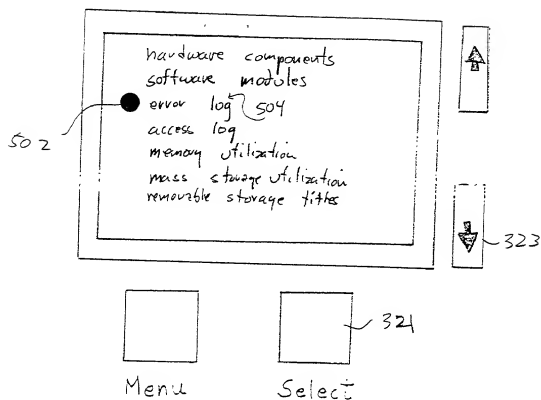 hardware components
software modules
error log 504
502
access log
memory utilization
mass storage utilization
removable storage titles
323
321
Menu Select